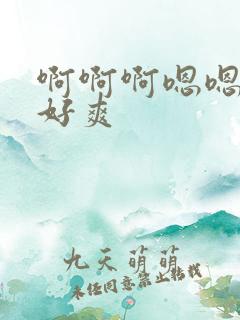 啊啊啊嗯嗯
好爽
九天萌萌
未经同意禁止转载